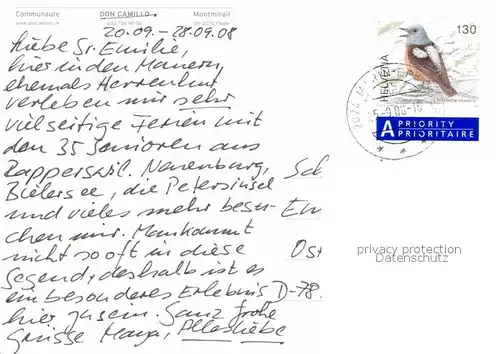 Communauté DON CAMILLO Montmirail
www.doncamillo.ch 032 756 90 00 CH-2075 Thielle
20.09. - 28.09.08
Liebe Sr. Emilie,
hier in den Mauern,
ehemals Herrenhut
verleben wir sehr
vielseitige Ferien mit
den 35 Senioren aus
Rapperswil. Neuenburg,
Bielersee, die Petersinsel
und vieles mehr besu-
chen wir. Man kommt
nicht so oft in diese
Gegend, deshalb ist es
ein besonderes Erlebnis
hier zu sein. Ganz frohe
Grüsse Maya, Alles Liebe
Sch
Em
Ost
D-78.
130
HELVETIA
A PRIORITY
PRIORITAIRE
privacy protection
Datenschutz